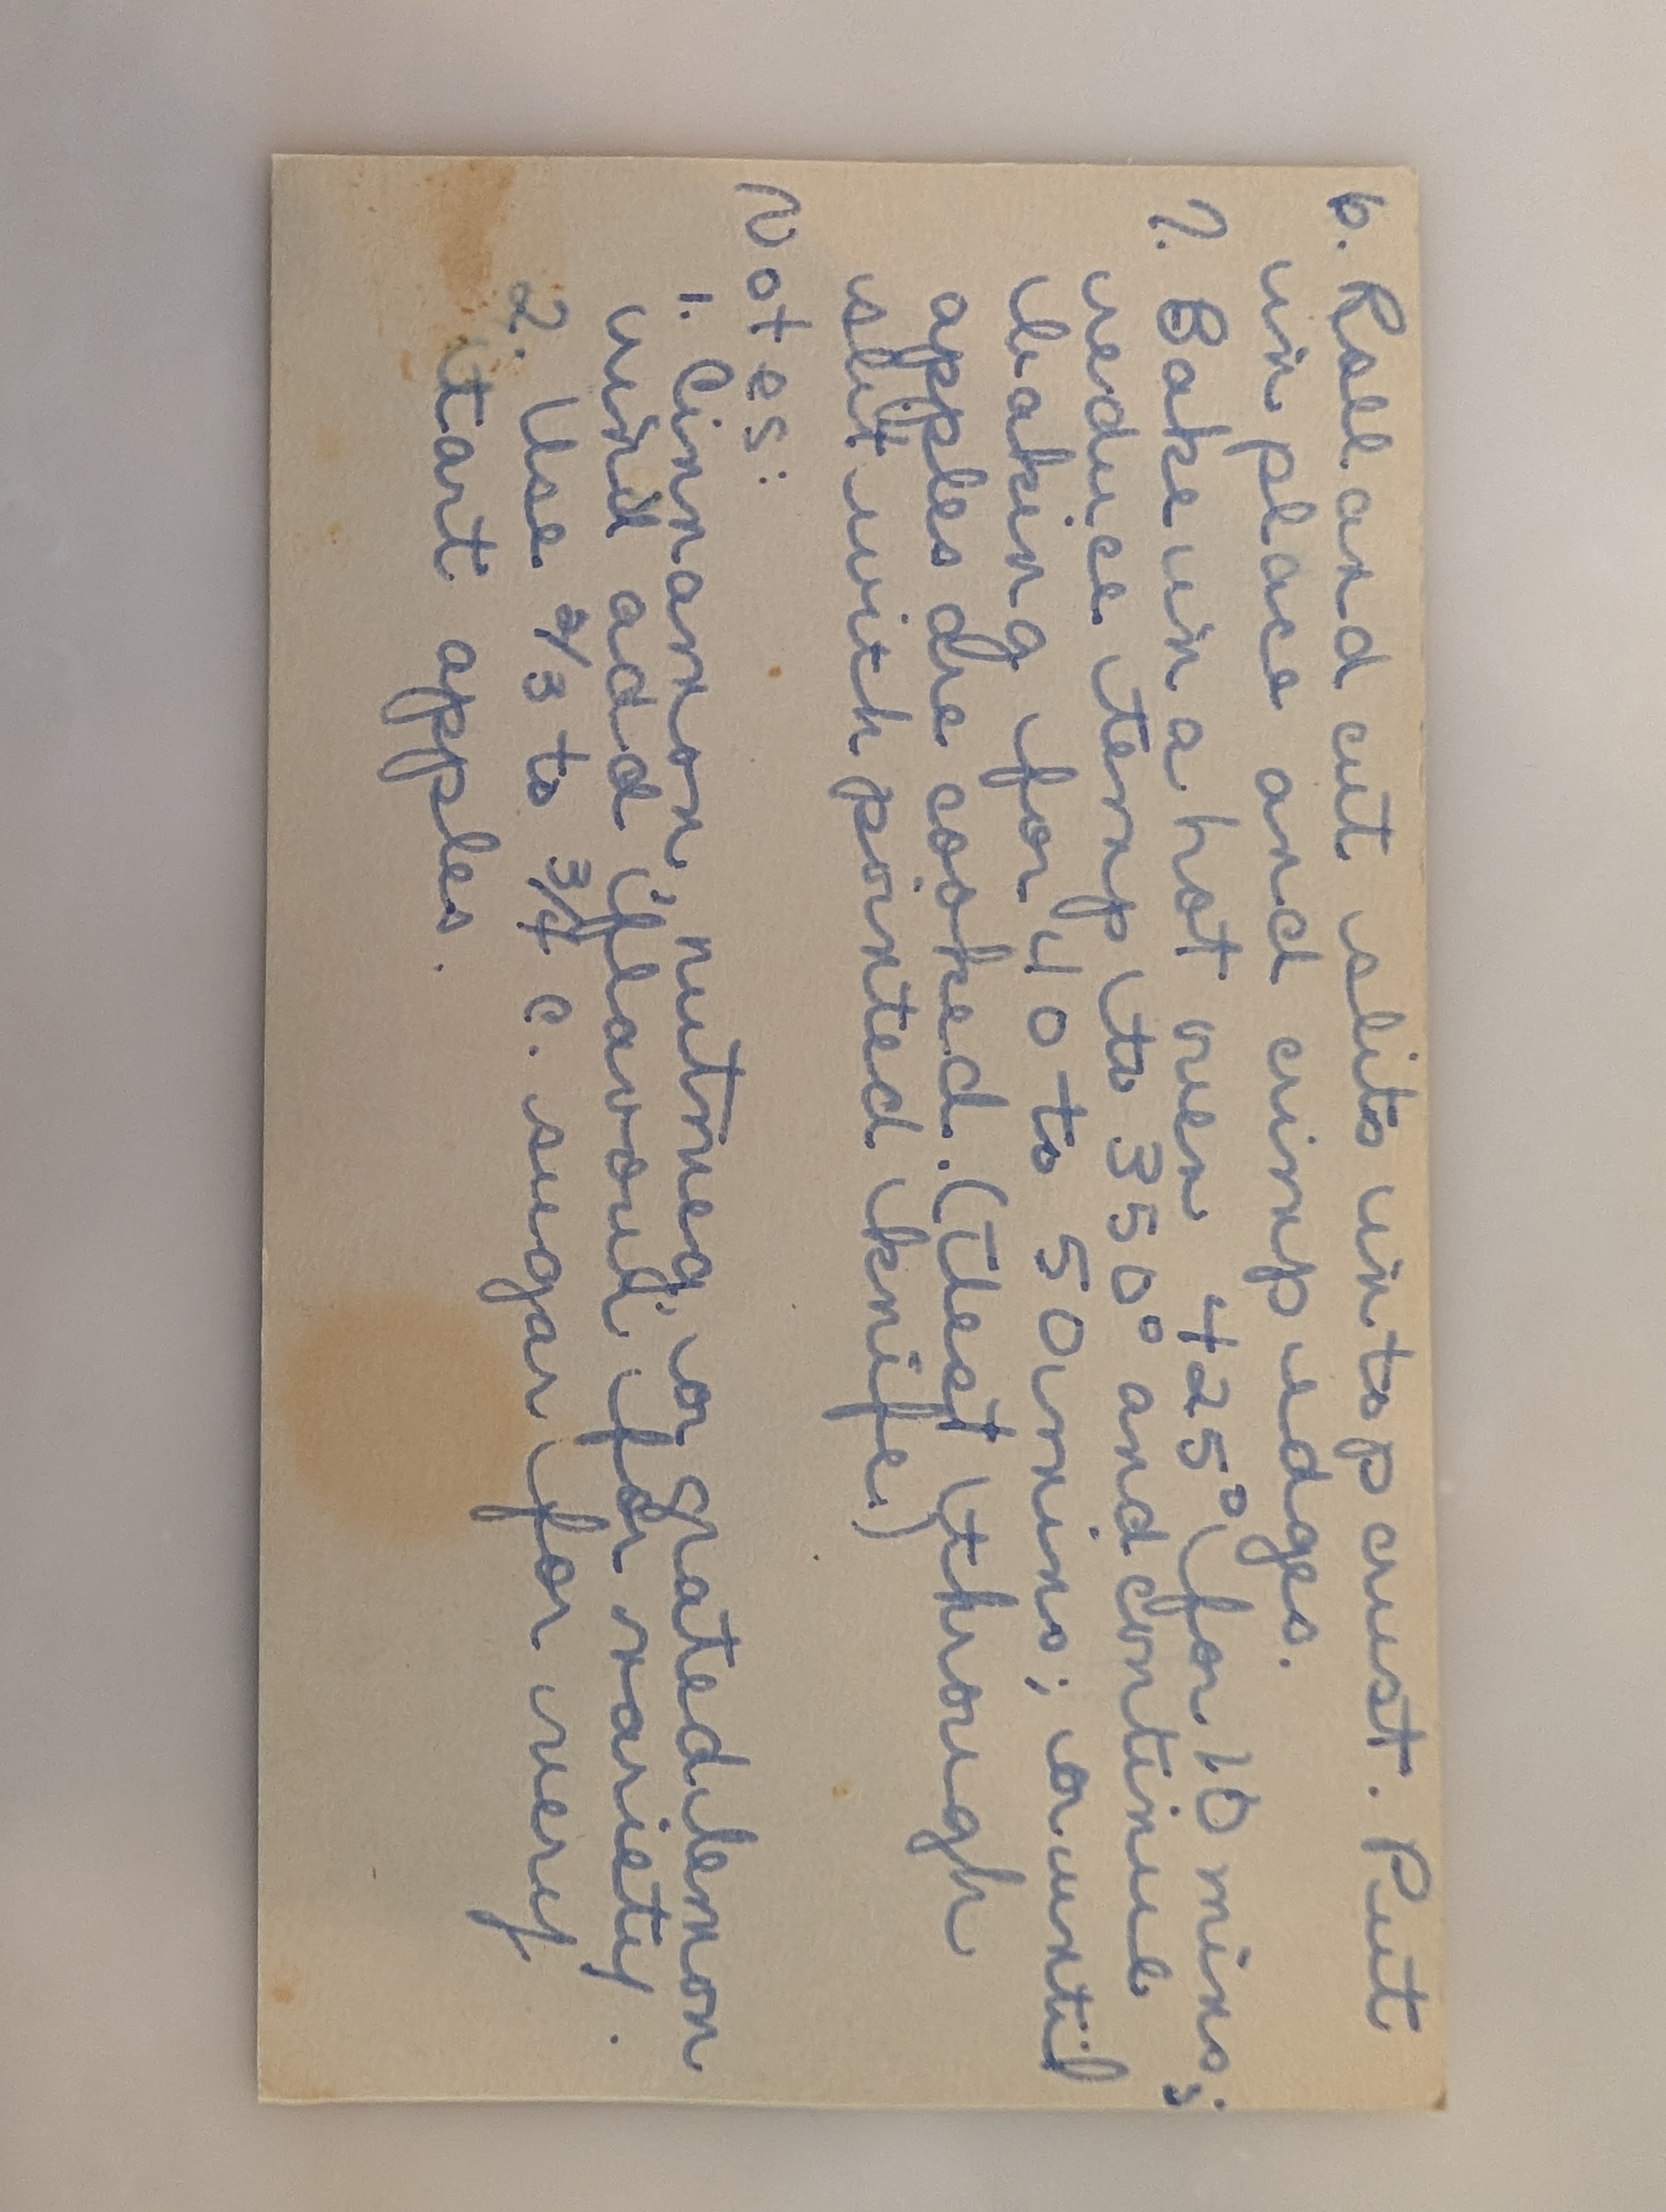 6. Roll and cut slits in top crust. Put
in place and crimp edges.
7. Bake in a hot oven 425° for 10 mins;
reduce temp to 350° and continue
baking for 40 to 50 mins; or until
apples are cooked. (Test through
slit with pointed knife.)
Notes:
1. Cinnamon, nutmeg, or grated lemon
rind add flavour for variety.
2. Use 2/3 to 3/4 c. sugar for very
tart apples.